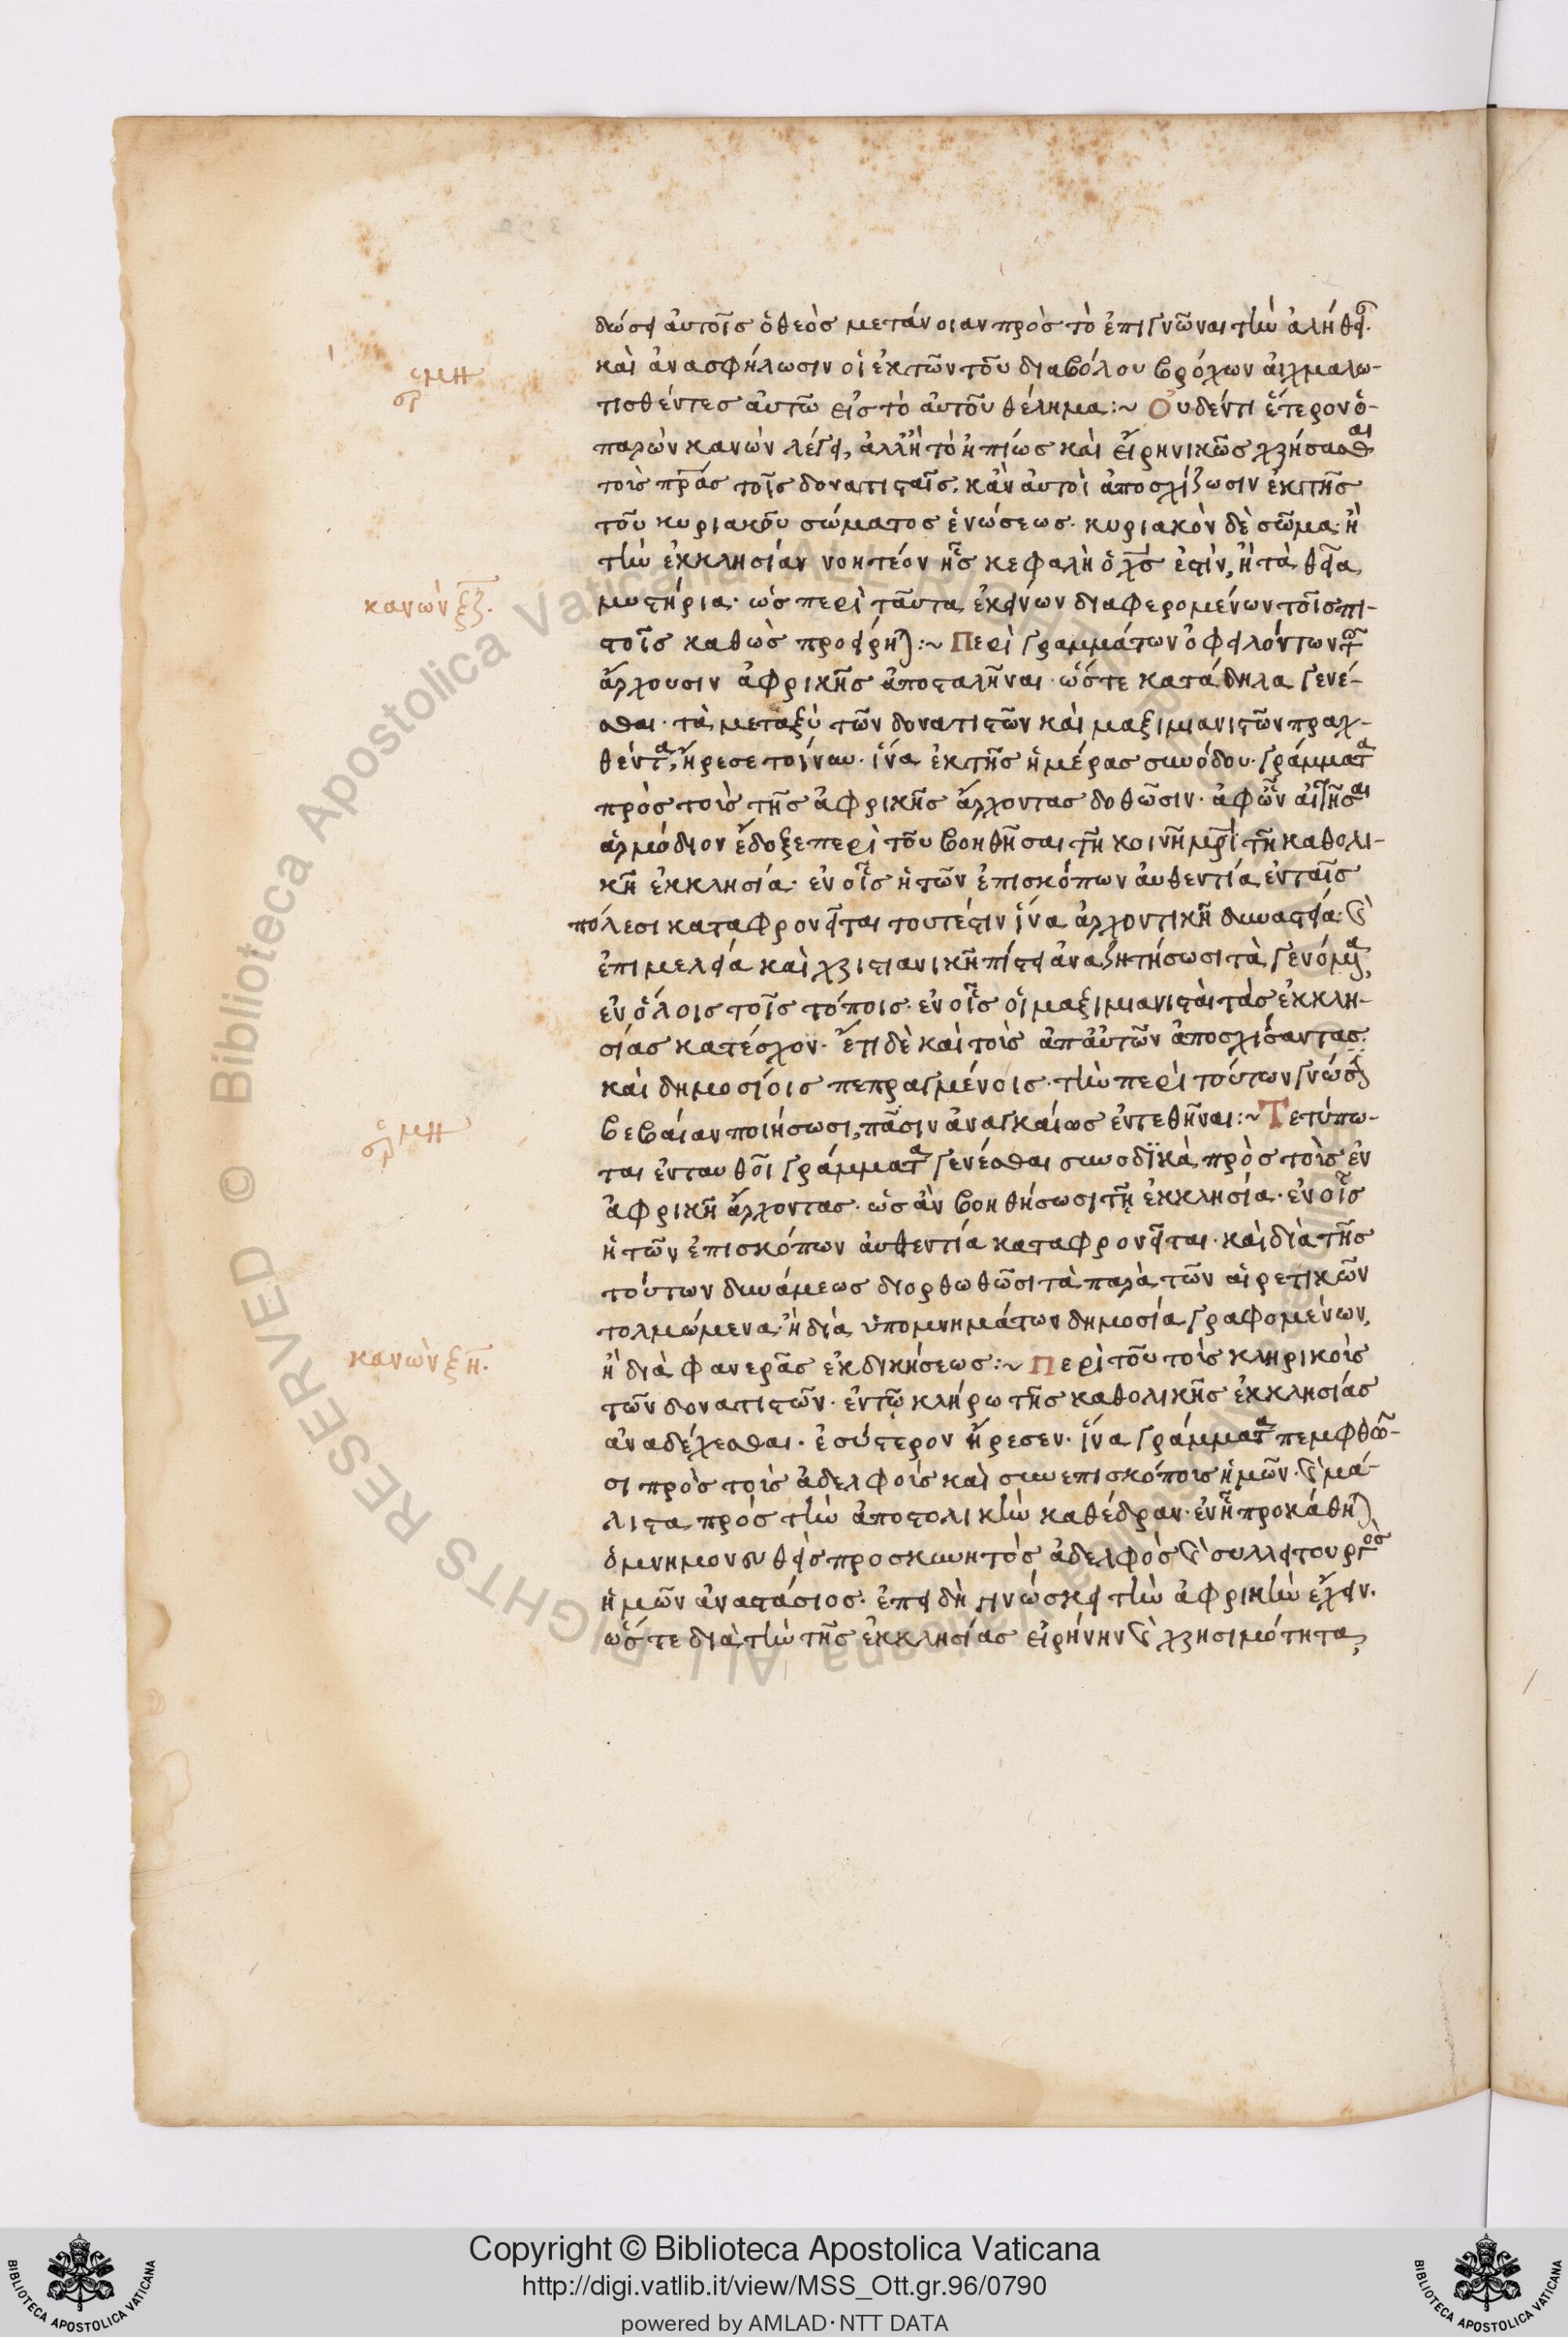 δώσει αὐτοῖς ὁ θεὸς μετάνοιαν πρὸς τὸ ἐπιγνῶναι τὴν ἀλήθει.
καὶ ἀνασφήλωσιν οἱ ἐκ τῶν τοῦ διαβόλου βρόχων αἰχμαλω-
ερμη
τισθέντες αὐτῶ εἰς τὸ αὐτοῦ θέλημα:~ Οὐδέν τι ἕτερον ὁ
παρὼν κανὼν λέγει, ἀλλ' ἢ τὸ ἠπίως καὶ εἰρηνικῶς χρήσασθαι
τοὺς πρας τοῖς δονατισταῖς, κἂν αὐτοὶ ἀποσχίζωσιν ἐκ τῆς
τοῦ κυριακοῦ σώματος ἑνώσεως. κυριακὸν δὲ σῶμα. ἢ
τὴν ἐκκλησίαν νοητέον ἧς κεφαλὴ ὁ χς ἐστὶν, ἢ τὰ θεῖα
κανὼν ξζ.
μυστήρια. ὡς περὶ ταῦτα ἐκείνων διαφερομένων τοῖς πι-
στοῖς καθὼς προείρηται:~ Περὶ γραμμάτων ὀφειλόντων τοῖς
ἄρχουσιν ἀφρικῆς ἀποσταλῆναι. ὥστε κατάδηλα γενέ-
σθαι. τὰ μεταξὺ τῶν δονατιστῶν καὶ μαξιμιανιστῶν πραχ-
θέντα, ἤρεσε τοίνυν. ἵνα ἐκ τῆς ἡμέρας συνόδου. γράμματα
πρὸς τοὺς τῆς ἀφρικῆς ἄρχοντας δοθῶσιν. ἀφ' ὧν αἰτῆσαι
ἁρμόδιον ἔδοξε περὶ τοῦ βοηθῆσαι τῆ κοινῆ μρι τῆ καθολι-
κῆ ἐκκλησία. ἐν οἷς ἡ τῶν ἐπισκόπων αὐθεντία ἐν ταῖς
πόλεσι καταφρονεῖται τουτέστιν ἵνα ἀρχοντικῆ δυναστεία. καὶ
ἐπιμελεία καὶ χριστιανικῆ πίστει ἀναζητήσωσι τὰ γενόμενα,
ἐν ὅλοις τοῖς τόποις. ἐν οἷς οἱ μαξιμιανισταὶ τὰς ἐκκλη-
σίας κατέσχον. ἔτι δὲ καὶ τοὺς ἀπ' αὐτῶν ἀποσχίσαντας.
καὶ δημοσίοις πεπραγμένοις. τὴν περὶ τούτων γνῶσιν
ερμη
βεβαίαν ποιήσωσι, πᾶσιν ἀναγκαίως ἐντεθῆναι:~ Τετύπω-
ται ἐνταυθοῖ γράμματα γενέσθαι συνοδϊκὰ πρὸς τοὺς ἐν
ἀφρικῆ ἄρχοντας. ὡς ἂν βοηθήσωσι τῆ ἐκκλησία. ἐν οἷς
ἡ τῶν ἐπισκόπων αὐθεντία καταφρονεῖται. καὶ διὰ τῆς
τούτων δυνάμεως διορθωθῶσι τὰ παρὰ τῶν αἱρετικῶν
τολμώμενα. ἢ διὰ ὑπομνημάτων δημοσία γραφομένων,
κανὼν ξη.
ἢ διὰ φανερᾶς ἐκδικήσεως:~ Περὶ τοῦ τοὺς κληρικοὺς
τῶν δονατιστῶν. ἐν τῷ κλήρω τῆς καθολικῆς ἐκκλησίας
ἀναδέχεσθαι. ἐσύστερον ἤρεσεν. ἵνα γράμματα πεμφθῶ-
σι πρὸς τοὺς ἀδελφοὺς καὶ συνεπισκόπους ἡμῶν. καὶ μά-
λιστα πρὸς τὴν ἀποστολικὴν καθέδραν. ἐν ἧ προκάθηται
ὁ μνημονευθεὶς προσκυνητὸς ἀδελφὸς καὶ συλλειτουργὸς
ἡμῶν ἀναστάσιος. ἐπειδὴ γινώσκει τὴν ἀφρικὴν ἔχειν.
ὥστε διὰ τὴν τῆς ἐκκλησίας εἰρήνην καὶ χρησιμότητα,
Copyright © Biblioteca Apostolica Vaticana
http://digi.vatlib.it/view/MSS_Ott.gr.96/0790
powered by AMLAD·NTT DATA
BIBLIOTECA APOSTOLICA VATICANA
BIBLIOTECA APOSTOLICA VATICANA
© Biblioteca Apostolica Vaticana ALL RIGHTS RESERVED